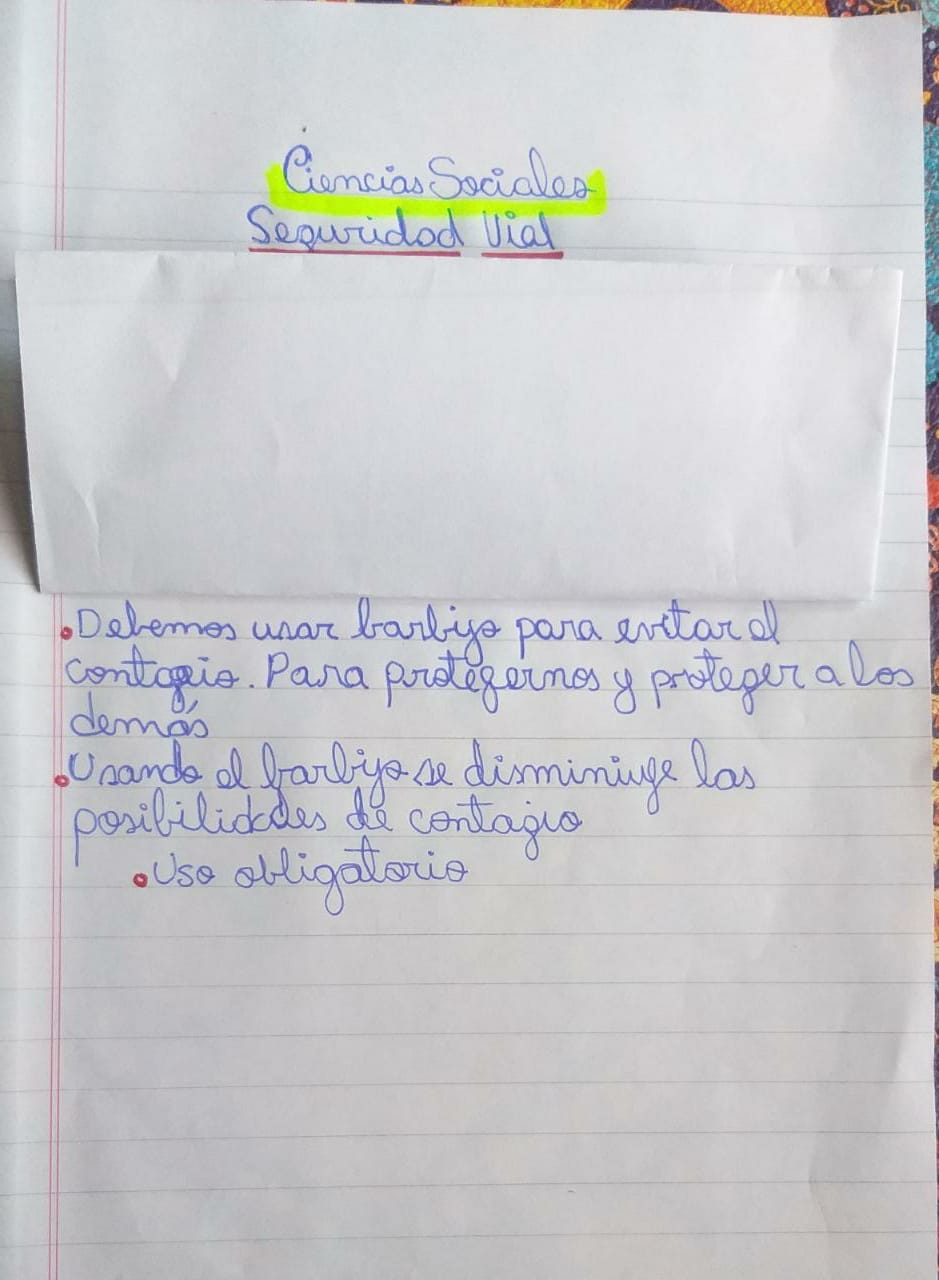 Ciencias Sociales
Seguridad Vial
• Debemos usar barbijo para evitar el
contagio. Para protegernos y proteger a los
demás
• Usando el barbijo se disminiuye las
posibilidades de contagio
• Uso obligatorio